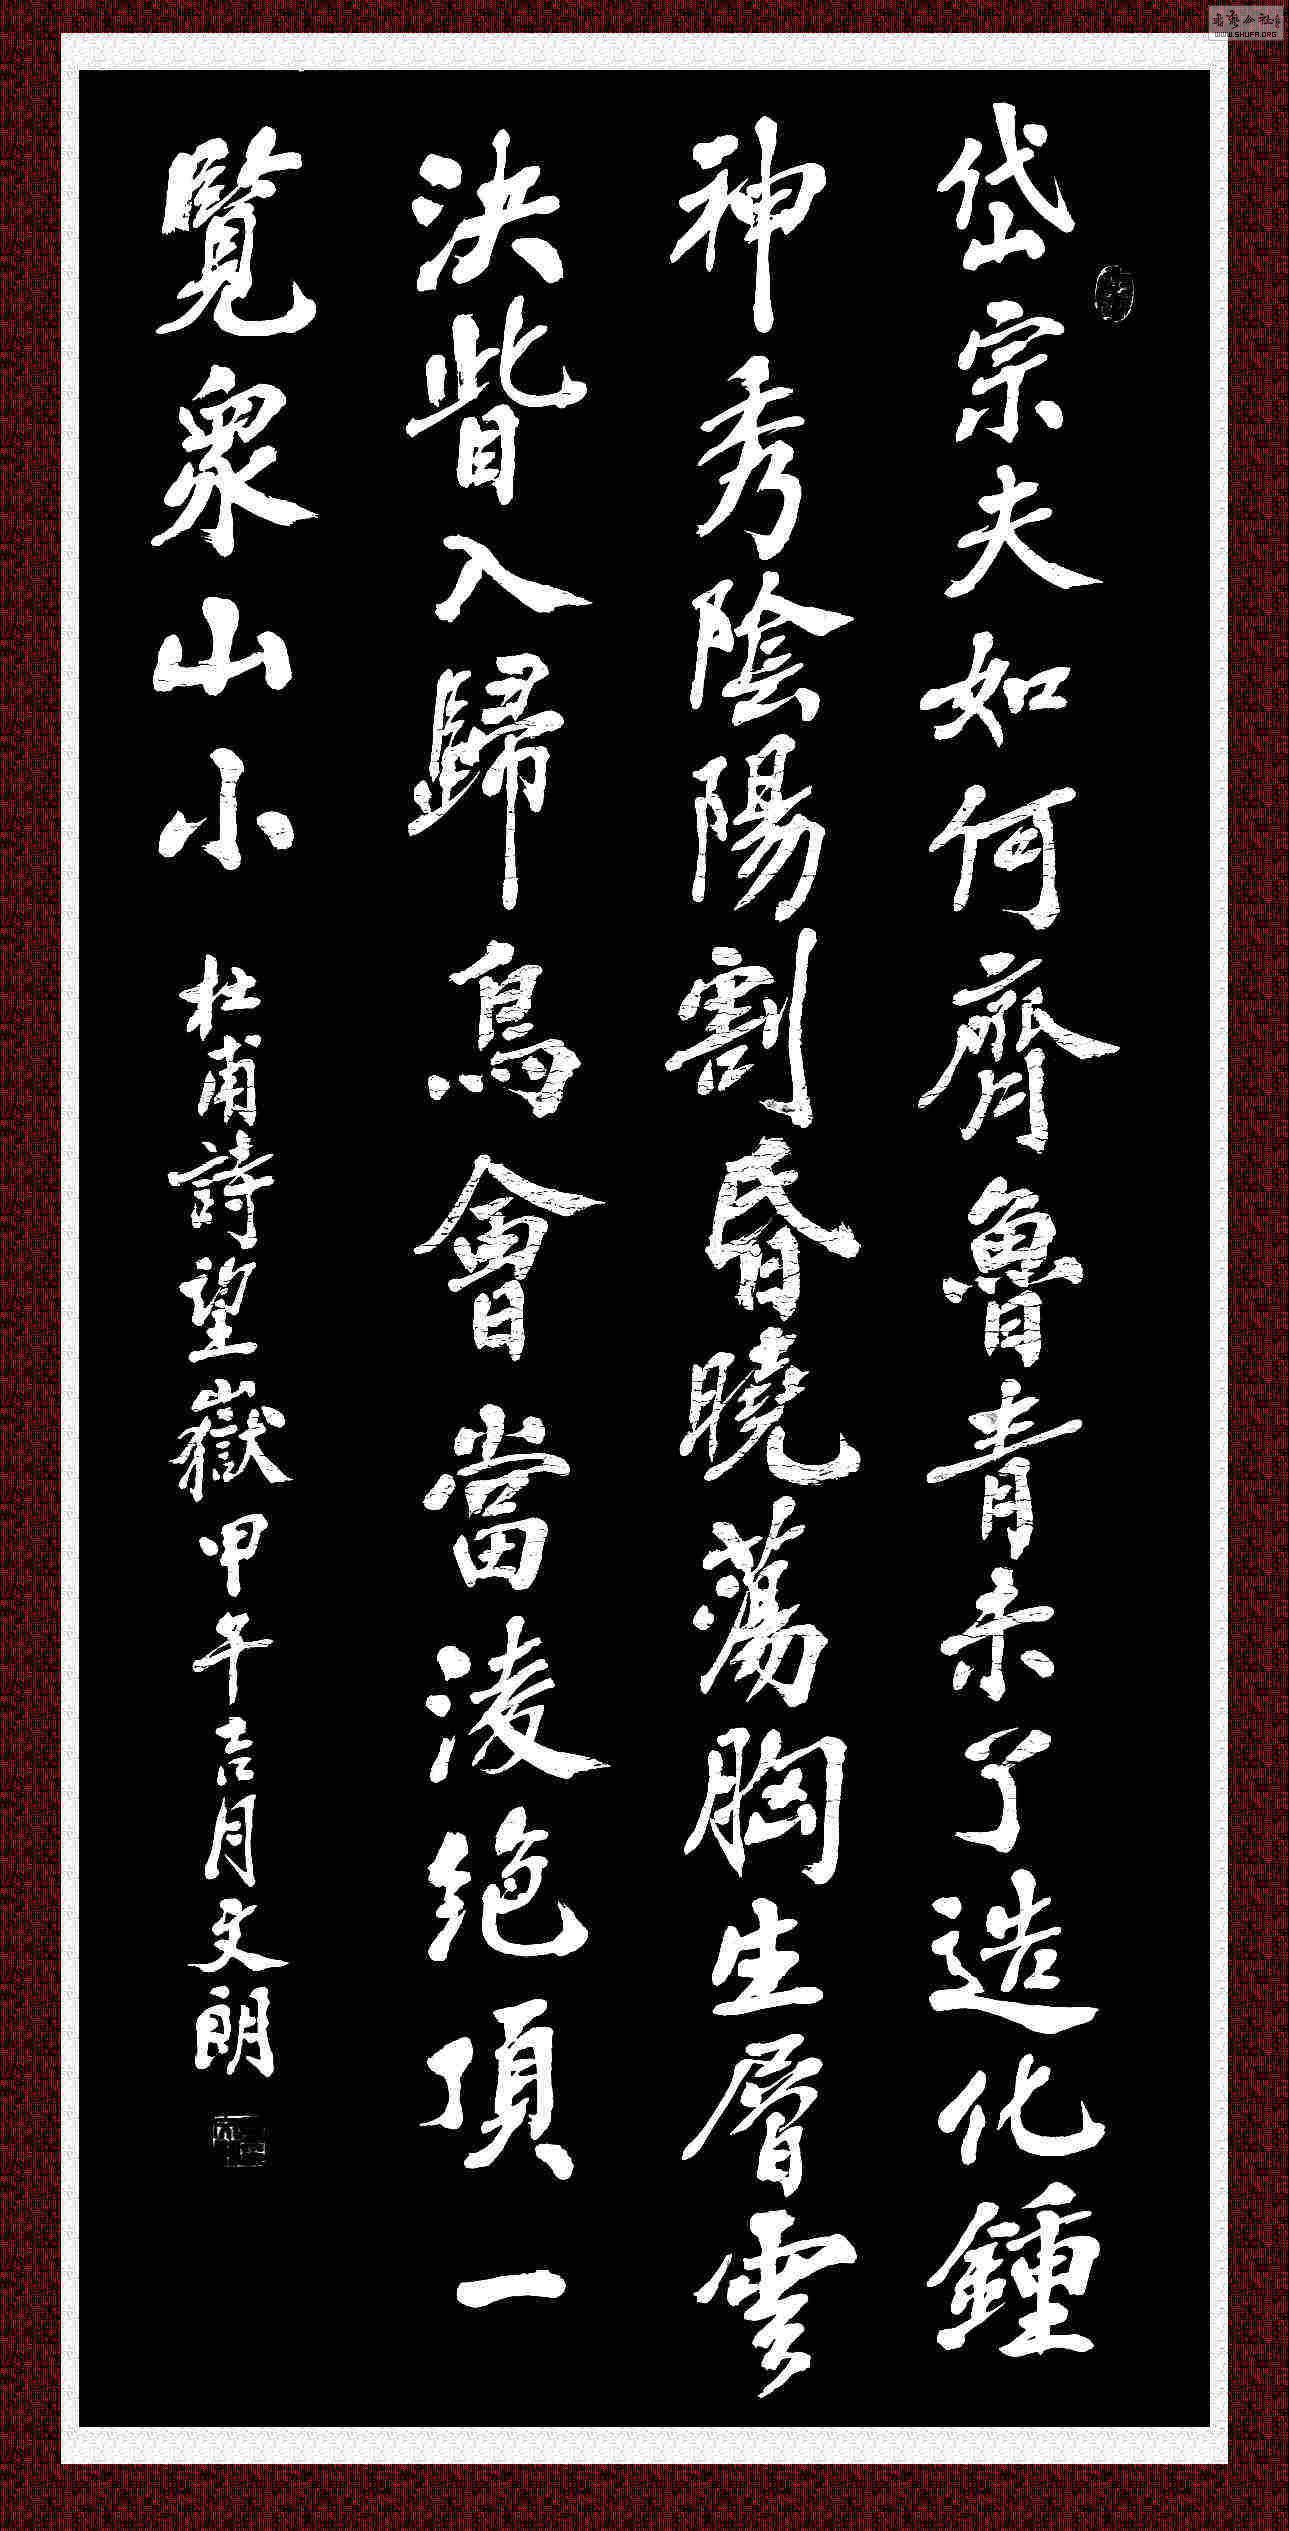 岱宗夫如何齊魯青未了造化鍾
神秀陰陽割昏曉蕩胸生層雲
決眥入歸鳥會當淩絕頂一
覽衆山小
杜甫詩望嶽甲午吉月文朗
WWW.SHUFA.ORG